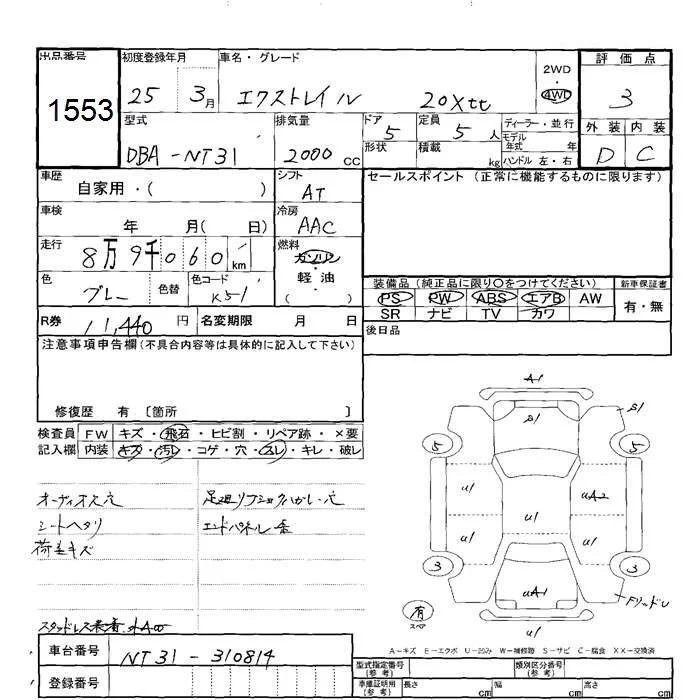 出品番号 初度登録年月 車名・グレード 評価点
1553 25 3月 エクストレイル 20Xtt 2WD 4WD 3
型式 排気量 ドア 5 定員 5人 ディーラー・並行 外装 内装
DBA-NT31 2000cc 形状 積載 kg モデル年式 年 D C
ハンドル 左・右
車歴 シフト セールスポイント(正常に機能するものに限ります)
自家用・( ) AT
車検 冷房
年 月( 日) AAC
走行 8万9千060km 燃料 ガソリン
軽油
( )
色 色替 色コード 装備品(純正品に限り○をつけてください) 新車保証書
グレー K51 PS PW ABS エアB AW 有・無
SR ナビ TV カワ
R券 11,440円 名変期限 月 日 後日品
注意事項申告欄(不具合内容等は具体的に記入して下さい)
修復歴 有 〔箇所 〕
検査員 FW キズ・飛石・ヒビ割・リペア跡・×要
記入欄 内装 キズ・汚レ・コゲ・穴・スレ・キレ・破レ
オーディオ欠穴
シートヘタリ
荷室キズ
エンドパネル
A1
S1 S1
5 5
U1 UA2
U1 U1 U1
3 3
UA1 FリッドU
U1
有
スペア
A-キズ E-エクボ U-凹み W-補修跡 S-サビ C-腐食 XX-交換済
車台番号 NT31-310814
登録番号
型式指定番号(参考) 類別区分番号(参考)
車庫証明用(参考) 長さ cm 幅 cm 高さ cm